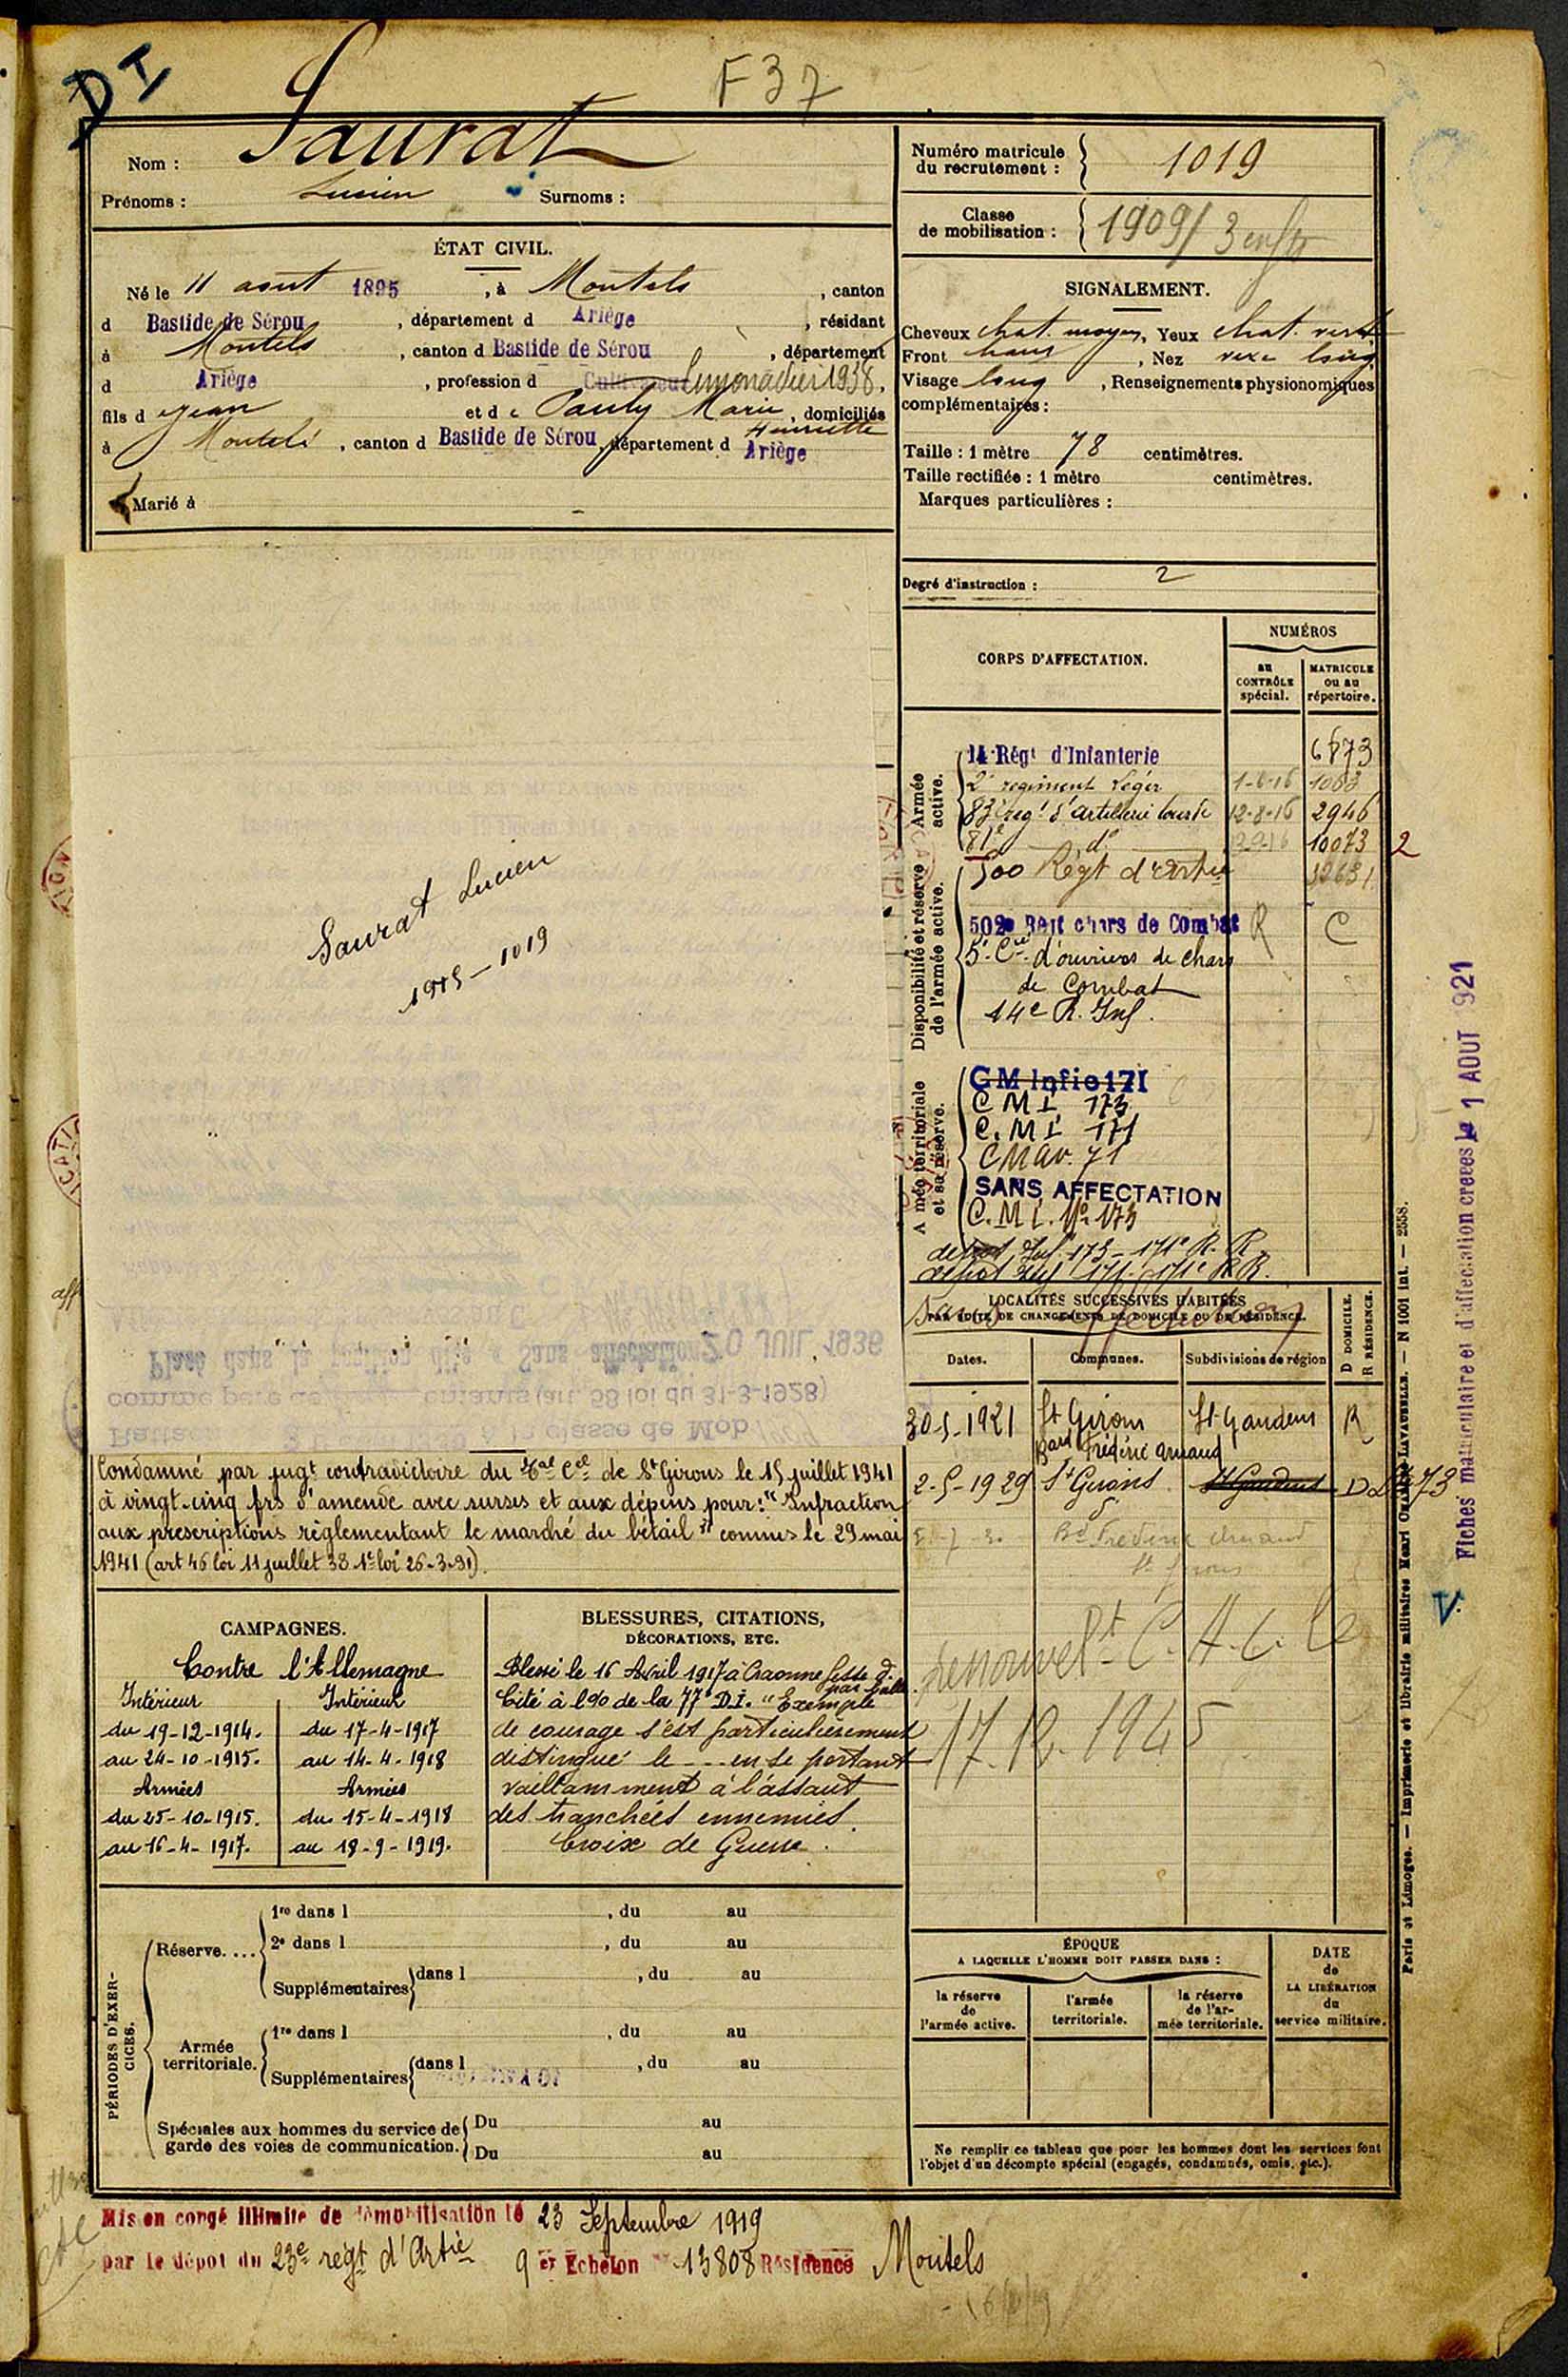 D I
F 37
Nom : Saurat
Prénoms : Lucien Surnoms :
ÉTAT CIVIL.
Né le 11 aout 1895, à Montels, canton
d Bastide de Sérou, département d Ariège, résidant
à Montels, canton d Bastide de Sérou, département
d Ariège, profession d Cultivateur limonadier 1938,
fils d e Jean et d e Pauly Marie Henriette, domiciliés
à Montels, canton d Bastide de Sérou, département d Ariège
Marié à
Numéro matricule du recrutement : 1019
Classe de mobilisation : 1909/ 3 enfts
SIGNALEMENT.
Cheveux chat. moyen, Yeux chat. vert
Front haut, Nez long
Visage long, Renseignements physionomiques
complémentaires :
Taille : 1 mètre 78 centimètres.
Taille rectifiée : 1 mètre centimètres.
Marques particulières :
Degré d'instruction : 2
CORPS D'AFFECTATION.
NUMÉROS
au CONTRÔLE spécial.
MATRICULE ou au répertoire.
Armée active.
14 Régt d'Infanterie
2e regiment Léger 1-6-16 1063
83e reg.t d'artillerie lourde 12-8-16 2946
81e d° 10073
2
Disponibilité et réserve de l'armée active.
500 Régt d'artie
502e Régt chars de Combat R C
5e Cie d'ouvriers de chars
de Combat
14e R. Inf.
Armée territoriale et sa réserve.
CM Infie 171
C M I. 173
C. M I 171
CM av. 71
SANS AFFECTATION
C. M I. N° 173
depot Inf. 173 - 171e R. R.
depot Inf 171. 171e R R.
LOCALITÉS SUCCESSIVES HABITÉES
PAR SUITE DE CHANGEMENTS DE DOMICILE OU DE RÉSIDENCE.
Dates. Communes. Subdivisions de région D DOMICILE. R RÉSIDENCE.
30-5-1921 St Girons St-Gaudens R
Bard Frédéric Arnaud
2-5-1929 St Girons St Gaudens D
Bd Frédéric Arnaud
St Girons
renouvelt C. A. C.
17.12.1945
Saurat Lucien
1915 - 1019
Placé dans la position dite « Sans affectation 20 JUIL. 1936
comme père de enfants (art. 58 loi du 31-3-1928)
à la classe de Mob
Condamné par jugt contradictoire du Tal Cel de St Girons le 15 juillet 1941
à vingt-cinq frs d'amende avec sursis et aux dépens pour : "Infraction
aux prescriptions règlementant le marché du bétail" commis le 29 mai
1941 (art 46 loi 11 juillet 38 1e loi 26-3-91).
CAMPAGNES.
Contre l'Allemagne
Intérieur
du 19-12-1914.
au 24-10-1915.
Armées
du 25-10-1915.
au 16-4-1917.
Intérieur
du 17-4-1917
au 14-4-1918
Armées
du 15-4-1918
au 18-9-1919.
BLESSURES, CITATIONS,
DÉCORATIONS, ETC.
Blessé le 16 Avril 1917 à Craonne fesse d. par balle.
Cité à l'%o de la 77e D.I. "Exemple
de courage s'est particulièrement
distingué le ... en se portant
vaillamment à l'assaut
des tranchées ennemies.
Croix de Guerre.
PÉRIODES D'EXERCICES.
Réserve....
1re dans l , du au
2e dans l , du au
Supplémentaires dans l , du au
Armée territoriale.
1re dans l , du au
Supplémentaires dans l , du au
Spéciales aux hommes du service de garde des voies de communication.
Du au
Du au
ÉPOQUE
A LAQUELLE L'HOMME DOIT PASSER DANS :
la réserve de l'armée active.
l'armée territoriale.
la réserve de l'armée territoriale.
DATE de LA LIBÉRATION du service militaire.
Ne remplir ce tableau que pour les hommes dont les services font
l'objet d'un décompte spécial (engagés, condamnés, omis, etc.).
Mis en congé illimité de démobilisation le 23 Septembre 1919
par le dépôt du 23e régt d'Artie 9 er Echelon 13808 Résidence Montels
Paris et Limoges. — Imprimerie et librairie militaires Henri CHARLES-LAVAUZELLE. — N 1001 int. — 2558.
Fiches matriculaire et d'affectation créées le 1 AOUT 921
V.
2